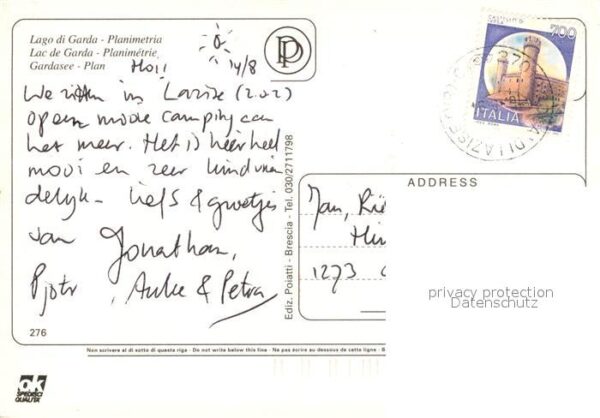 Lago di Garda - Planimetria
Lac de Garda - Planimétrie
Gardasee - Plan
Hoi! 14/8
We zitten in Lazise (z.o.z)
op een mooie camping aan
het meer. Het is hier heel
mooi en zeer kindvrien
delijk. Liefs & groetjes
van Jonathan,
Pjotr, Auke & Petra
276
Ediz. Poiatti - Brescia - Tel. 030/2711798
DP
700
ITALIA
ADDRESS
Jan,
1273
privacy protection
Datenschutz
Non scrivere al di sotto di questa riga - Do not write below this line - Ne pas écrire au dessous de cette ligne -
ok
SPEDIRECI
QUALITER